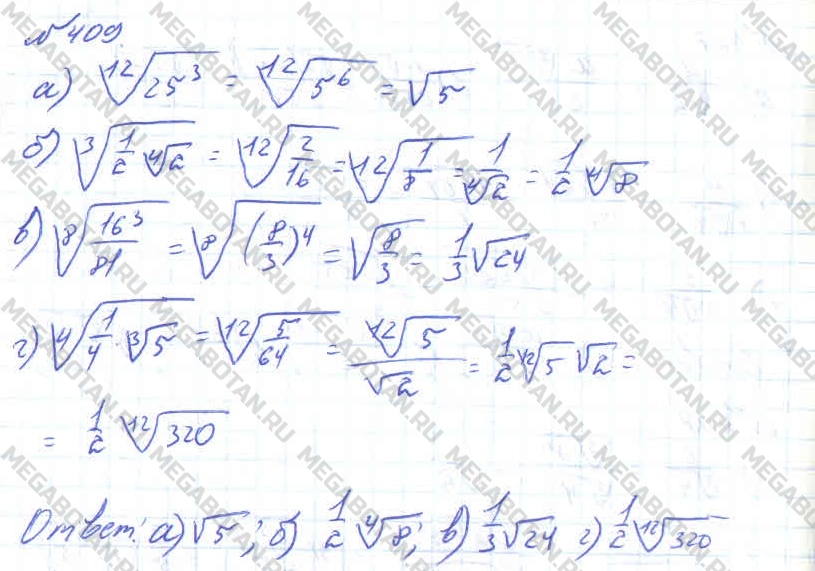 №409.
а) \sqrt[12]{25^3} = \sqrt[12]{5^6} = \sqrt{5}
б) \sqrt[3]{\frac{1}{2}\sqrt[4]{2}} = \sqrt[12]{\frac{2}{16}} = \sqrt[12]{\frac{1}{8}} = \frac{1}{\sqrt[4]{2}} = \frac{1}{2}\sqrt[4]{8}
в) \sqrt[8]{\frac{16^3}{81}} = \sqrt[8]{(\frac{8}{3})^4} = \sqrt{\frac{8}{3}} = \frac{1}{3}\sqrt{24}
г) \sqrt[4]{\frac{1}{4} \cdot \sqrt[3]{5}} = \sqrt[12]{\frac{5}{64}} = \frac{\sqrt[12]{5}}{\sqrt{2}} = \frac{1}{2}\sqrt[12]{5}\sqrt{2} =
= \frac{1}{2}\sqrt[12]{320}
Ответ: а) \sqrt{5}; б) \frac{1}{2}\sqrt[4]{8}; в) \frac{1}{3}\sqrt{24} г) \frac{1}{2}\sqrt[12]{320}
MEGABOTAN.RU